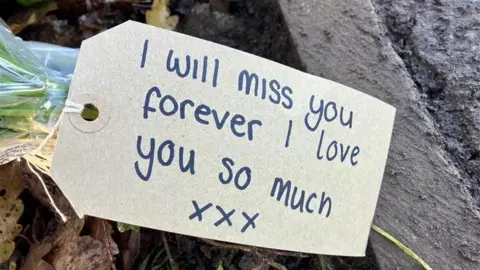 I will miss you
forever I love
you so much
xxx